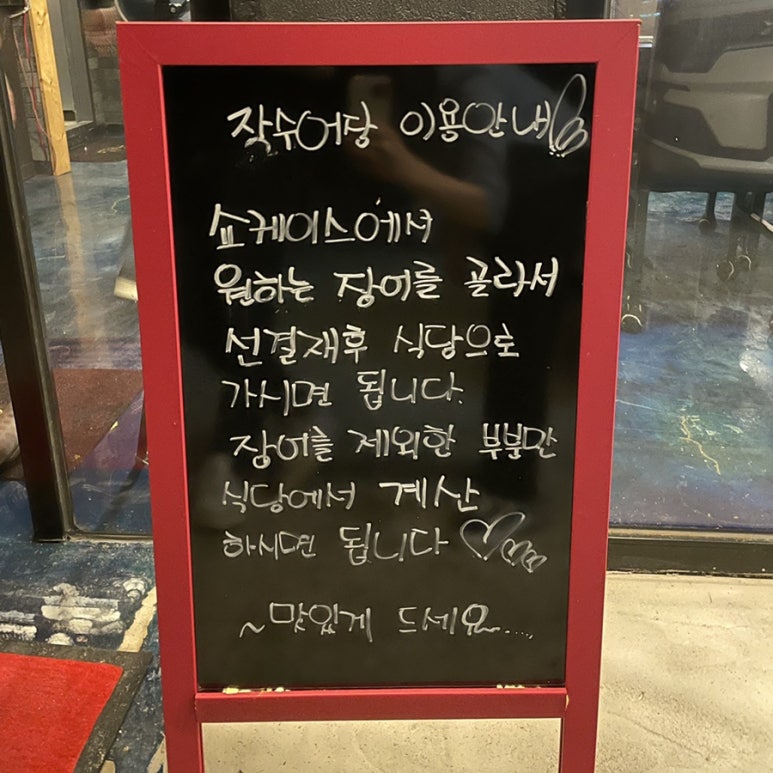 작수어당 이용안내
쇼케이스에서
원하는 장어를 골라서
선결재후 식당으로
가시면 됩니다.
장어를 제외한 부분만
식당에서 계산
하시면 됩니다
~맛있게 드세요~....